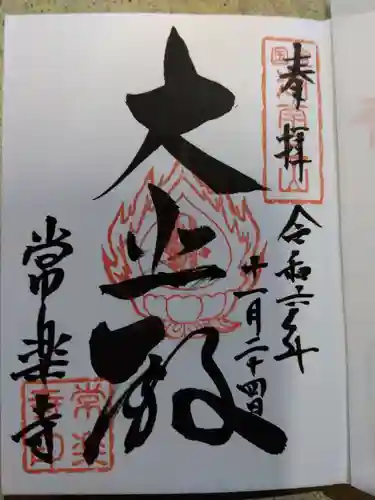 奉拝
令和六年
十一月二十四日
大悲殿
常楽寺
常楽寺印